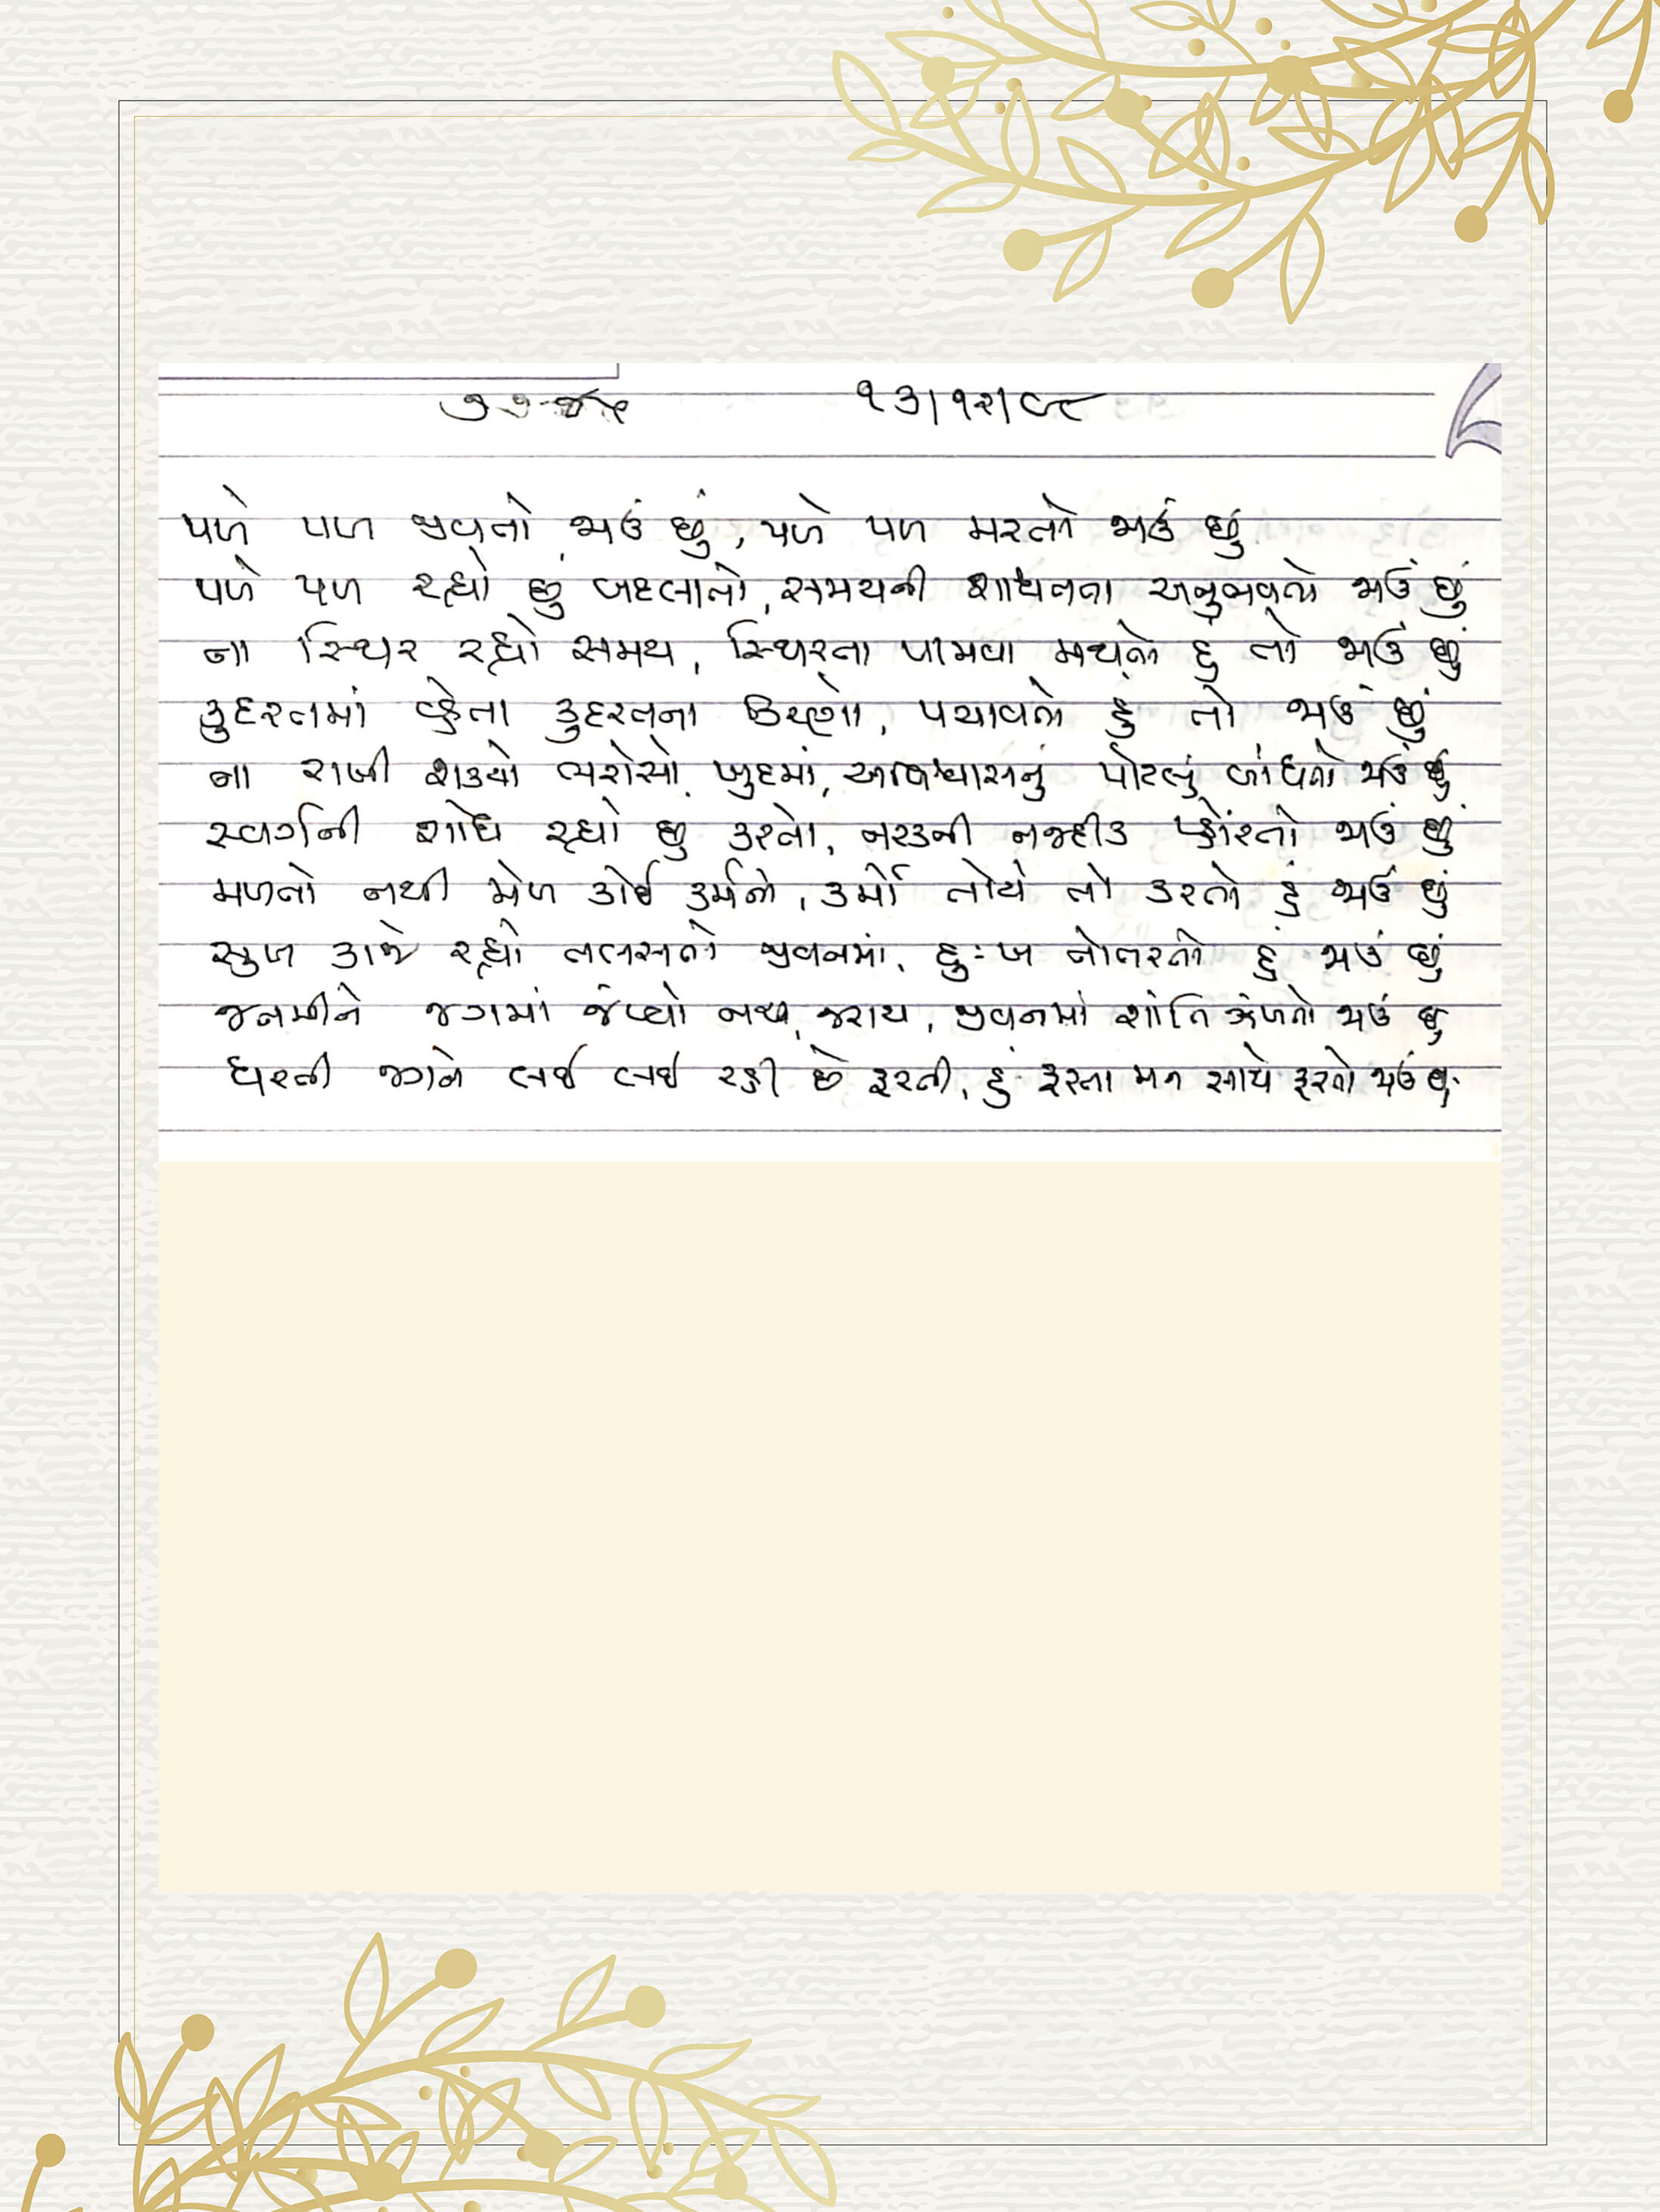 ૧૩/૧૨/૯૮
પળે પળ જીવતો જાઉં છું, પળે પળ મરતો જાઉં છું
પળે પળ રહ્યો છું બદલાતો, સમયની શાશ્વતતા અનુભવતો જાઉં છું
ના સ્થિર રહ્યો સમય, સ્થિરતા પામવા મથતો હું તો જાઉં છું
કુદરતમાં વ્હેતા કુદરતના કિરણો, પચાવતો હું તો જાઉં છું
ના રાખી શક્યો ભરોસો ખુદમાં, અવિશ્વાસનું પોટલું બાંધતો જાઉં છું
સ્વર્ગની શોધ રહ્યો છું કરતો, નરકની નજદીક પ્હોંચતો જાઉં છું
મળતો નથી મેળ કોઈ કર્મનો, કર્મો તોયે તો કરતો હું જાઉં છું
સુખ કાજે રહ્યો તલસતો જીવનમાં, દુઃખ નોતરતો હું જાઉં છું
જનમીને જગમાં જંપ્યો નથી જરાય, જીવનમાં શાંતિ ઝંખતો જાઉં છું
ધરતી જગને લઈ લઈ રહી છે ફરતી, હું ફરતા મન સાથે ફરતો જાઉં છું